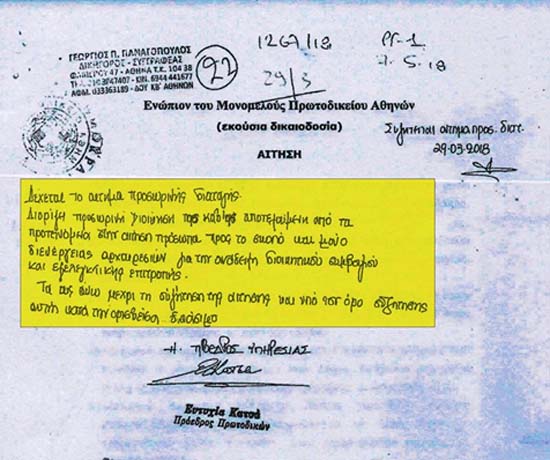 ΓΕΩΡΓΙΟΣ Π. ΠΑΝΑΓΟΠΟΥΛΟΣ
ΔΙΚΗΓΟΡΟΣ - ΣΥΓΓΡΑΦΕΑΣ
47 - ΑΘΗΝΑ Τ.Κ. 104 38
ΚΙΝ. 6944 441677
ΑΦΜ. 033363189 - ΔΟΥ ΚΒ΄ ΑΘΗΝΩΝ
92
1267/18
29/3
Ενώπιον του Μονομελούς Πρωτοδικείου Αθηνών
(εκούσια δικαιοδοσία)
ΑΙΤΗΣΗ
Συζητείται αίτημα προς. διατ.
29-03-2018
Δέχεται το αίτημα προσωρινής διαταγής.
Διορίζει προσωρινή διοίκηση της καθ'ης αποτελούμενη από τα
προτεινόμενα στην αίτηση πρόσωπα προς το σκοπό και μόνο
διενέργειας αρχαιρεσιών για την ανάδειξη διοικητικού συμβουλίου
και εξελεγκτικής επιτροπής.
Τα ως άνω μέχρι τη συζήτηση της αίτησης και υπό τον όρο συζήτησης
αυτή κατά την ορισθείσα δικάσιμο
Η ΠΡΟΕΔΡΟΣ ΥΠΗΡΕΣΙΑΣ
Ευτυχία Κατσά
Πρόεδρος Πρωτοδικών